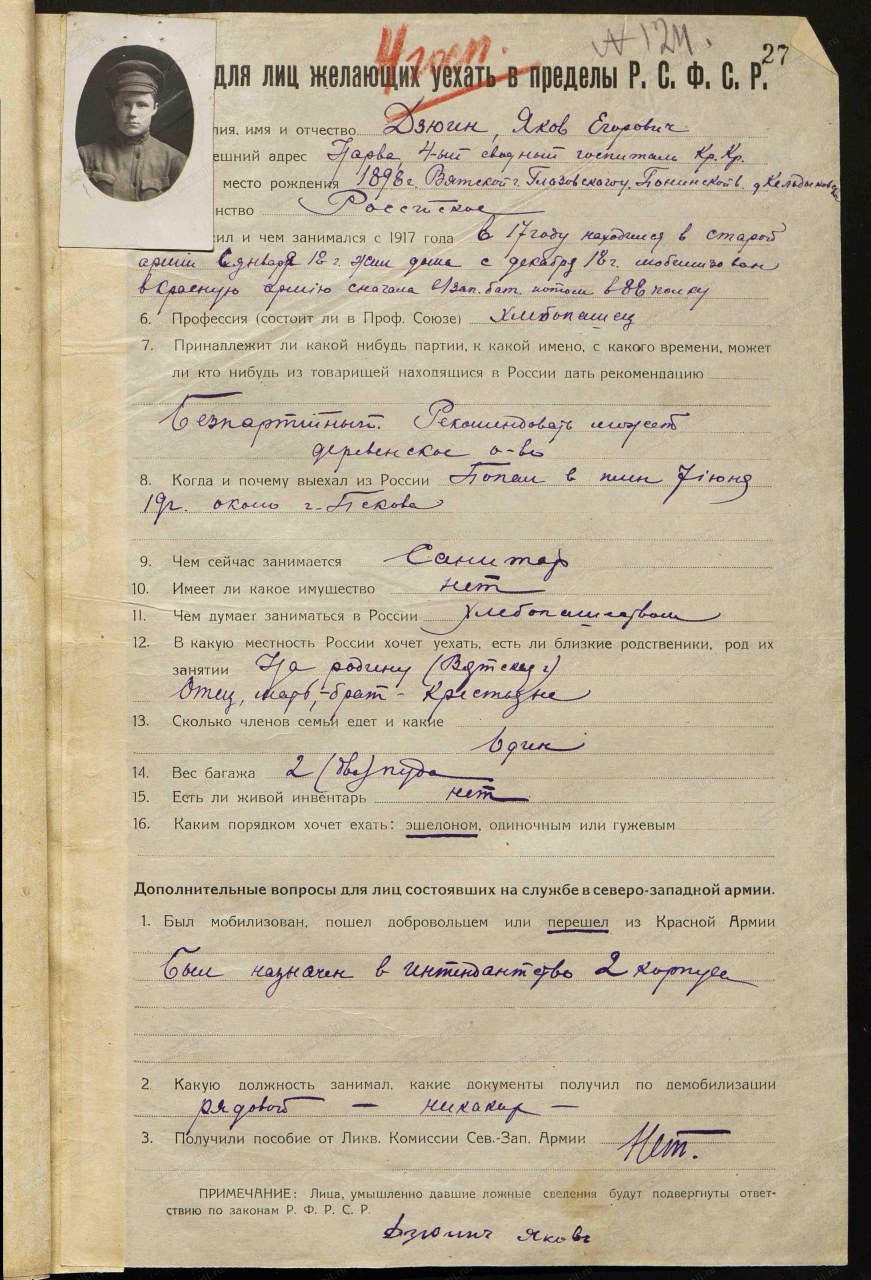 4 госп.
№ 124.
27
для лиц желающих уехать в пределы Р. С. Ф. С. Р.
имя и отчество Дзюин, Яков Егорович
адрес Нарва, 4-ый сводный госпиталь Кр. Кр.
место рождения 1898 г. Вятской г. Глазовского у. Понинской в.
нство Россійское
ил и чем занимался с 1917 года в 17 году находился в старой
армии с января 18 г. жил дома с декабря 18 г. мобилизован
в красную армію сначала в 1 зап. бат. потом в 86 полку
6. Профессия (состоит ли в Проф. Союзе) Хлебопашец
7. Приналлежит ли какой нибудь партии, к какой имено, с какого времени, может
ли кто нибудь из товарищей находящися в России дать рекомендацию
Безпартійный. Рекомендовать может
деревенское о-во
8. Когда и почему выехал из России Попал в плен 7 іюня
19 г. около г. Пскова
9. Чем сейчас занимается Санитар
10. Имеет ли какое имущество нет
11. Чем думает заниматься в России Хлебопашеством
12. В какую местность России хочет уехать, есть ли близкие родственики, род их
занятии На родину (Вятская г)
Отец, мать, - брат - Крестьяне
13. Сколько членов семьи едет и какие
Один
14. Вес багажа 2 (два) пуда
15. Есть ли живой инвентарь нет
16. Каким порядком хочет ехать: эшелоном, одиночным или гужевым
Дополнительные вопросы для лиц состоявших на службе в северо-западной армии.
1. Был мобилизован, пошел добровольцем или перешел из Красной Армии
Был назначен в интендантство 2 корпуса
2. Какую должность занимал, какие документы получил по демобилизации
рядовой — никаких —
3. Получили пособие от Ликв. Комиссии Сев.-Зап. Армии Нет.
ПРИМЕЧАНИЕ: Лица, умышленно давшие ложные сведения будут подвергнуты ответ-
ствию по законам Р. Ф. Р. С. Р.
Дзюинъ Яковъ